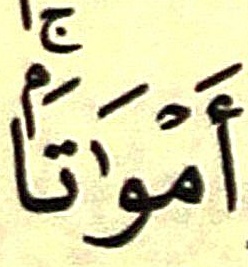 أَمْوَٰتَۢا ۚ